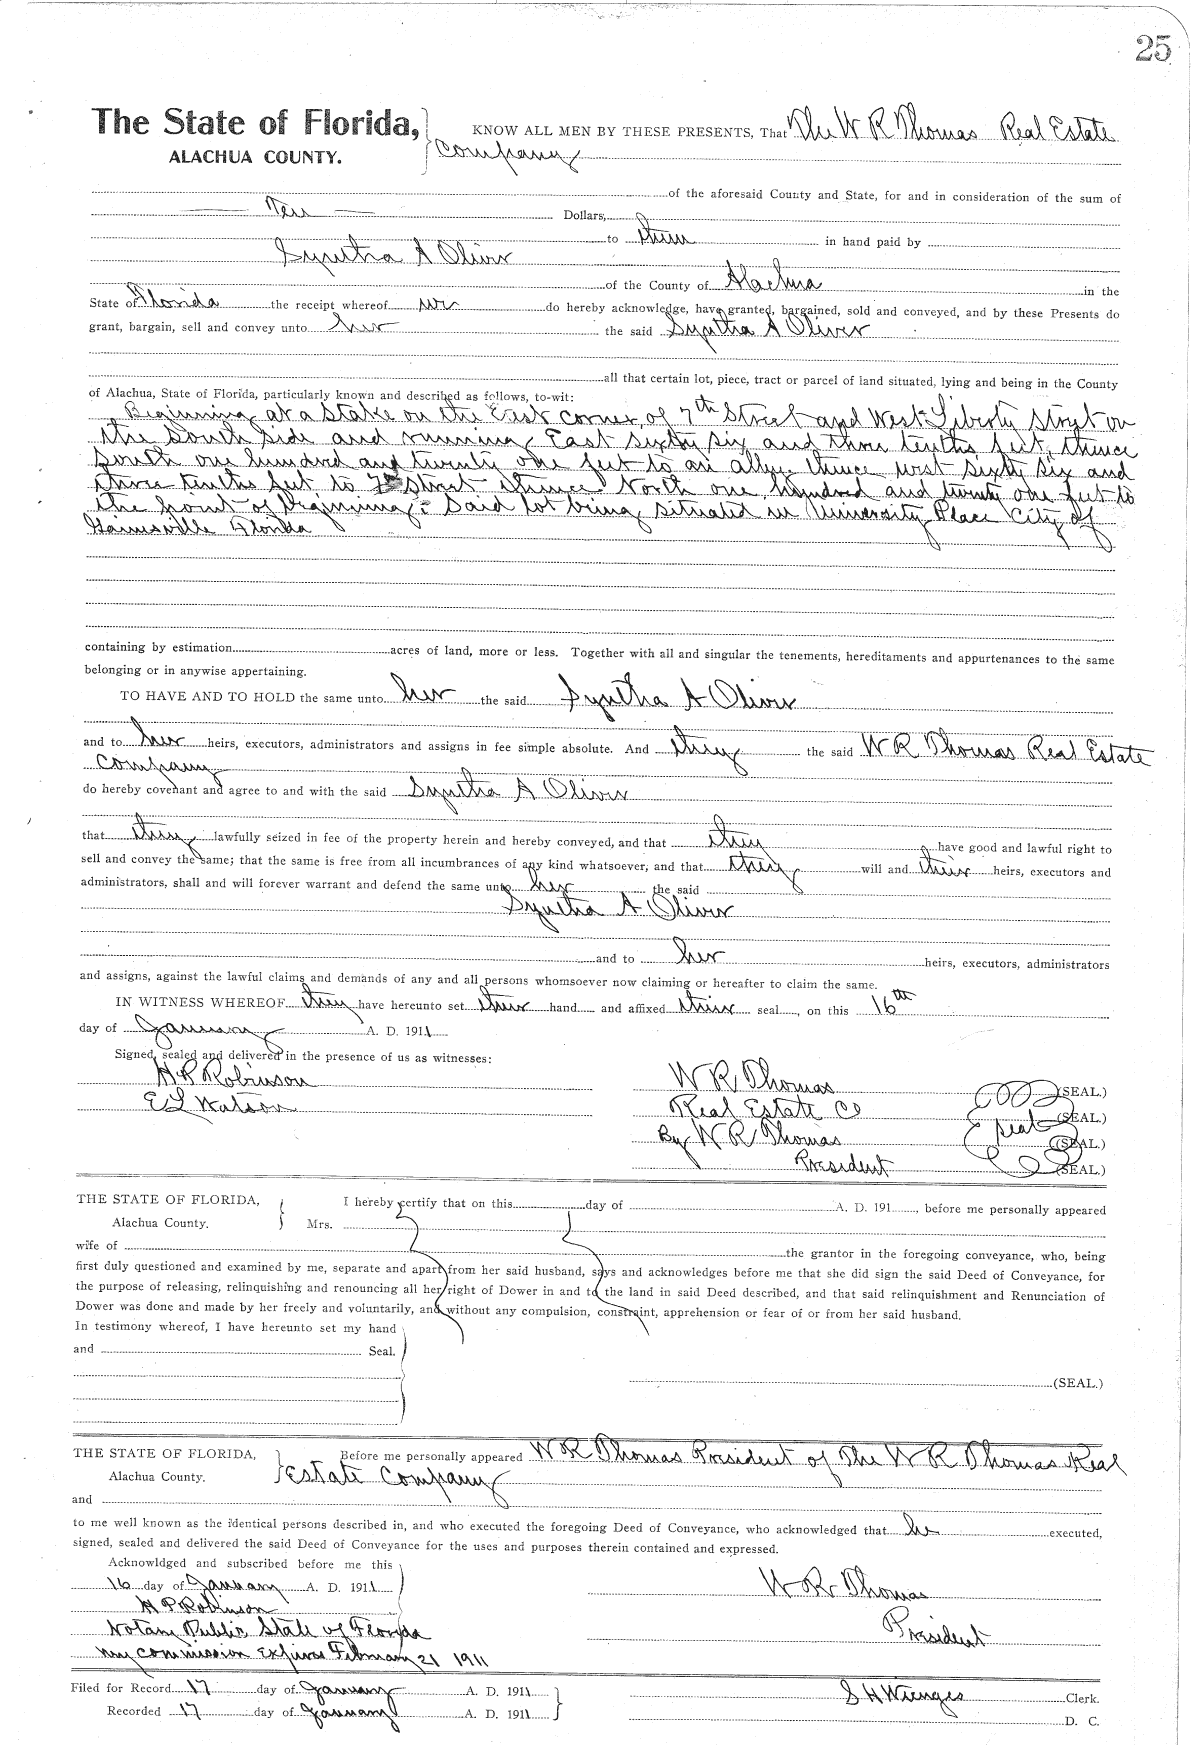 25
The State of Florida, KNOW ALL MEN BY THESE PRESENTS, That The W R Thomas Real Estate
ALACHUA COUNTY. Company
of the aforesaid County and State, for and in consideration of the sum of
Ten Dollars,
to them in hand paid by
Syntha A Oliver
of the County of Alachua in the
State of Florida the receipt whereof we do hereby acknowledge, have granted, bargained, sold and conveyed, and by these Presents do
grant, bargain, sell and convey unto her the said Syntha A Oliver
all that certain lot, piece, tract or parcel of land situated, lying and being in the County
of Alachua, State of Florida, particularly known and described as follows, to-wit:
Beginning at a Stake on the East corner of 7th Street and West Liberty Street on
the South Side and running East sixty six and three tenths feet, thence
South one hundred and twenty one feet to an alley thence west sixty six and
three tenths feet to 7th Street thence North one hundred and twenty one feet to
the point of Beginning. Said lot being situated in University Place City of
Gainesville Florida
containing by estimation acres of land, more or less. Together with all and singular the tenements, hereditaments and appurtenances to the same
belonging or in anywise appertaining.
TO HAVE AND TO HOLD the same unto her the said Syntha A Oliver
and to her heirs, executors, administrators and assigns in fee simple absolute. And they the said W R Thomas Real Estate
Company
do hereby covenant and agree to and with the said Syntha A Oliver
that they lawfully seized in fee of the property herein and hereby conveyed, and that they have good and lawful right to
sell and convey the same; that the same is free from all incumbrances of any kind whatsoever, and that they will and their heirs, executors and
administrators, shall and will forever warrant and defend the same unto her the said
Syntha A Oliver
and to her heirs, executors, administrators
and assigns, against the lawful claims and demands of any and all persons whomsoever now claiming or hereafter to claim the same.
IN WITNESS WHEREOF they have hereunto set their hand and affixed their seal, on this 16th
day of January A. D. 1911
Signed, sealed and delivered in the presence of us as witnesses:
H P Robinson W R Thomas (SEAL.)
E L Watson Real Estate Co (SEAL.)
By W R Thomas Seal (SEAL.)
President (SEAL.)
THE STATE OF FLORIDA, I hereby certify that on this day of A. D. 191, before me personally appeared
Alachua County. Mrs.
wife of the grantor in the foregoing conveyance, who, being
first duly questioned and examined by me, separate and apart from her said husband, says and acknowledges before me that she did sign the said Deed of Conveyance, for
the purpose of releasing, relinquishing and renouncing all her right of Dower in and to the land in said Deed described, and that said relinquishment and Renunciation of
Dower was done and made by her freely and voluntarily, and without any compulsion, constraint, apprehension or fear of or from her said husband.
In testimony whereof, I have hereunto set my hand
and Seal.
(SEAL.)
THE STATE OF FLORIDA, Before me personally appeared W R Thomas President of The W R Thomas Real
Alachua County. Estate Company
and
to me well known as the identical persons described in, and who executed the foregoing Deed of Conveyance, who acknowledged that he executed,
signed, sealed and delivered the said Deed of Conveyance for the uses and purposes therein contained and expressed.
Acknowldged and subscribed before me this
16 day of January A. D. 1911 W R Thomas
H P Robinson
Notary Public State of Florida President
my commission Expires February 21 1911
Filed for Record 17 day of January A. D. 1911 S H Wienges Clerk.
Recorded 17 day of January A. D. 1911 D. C.